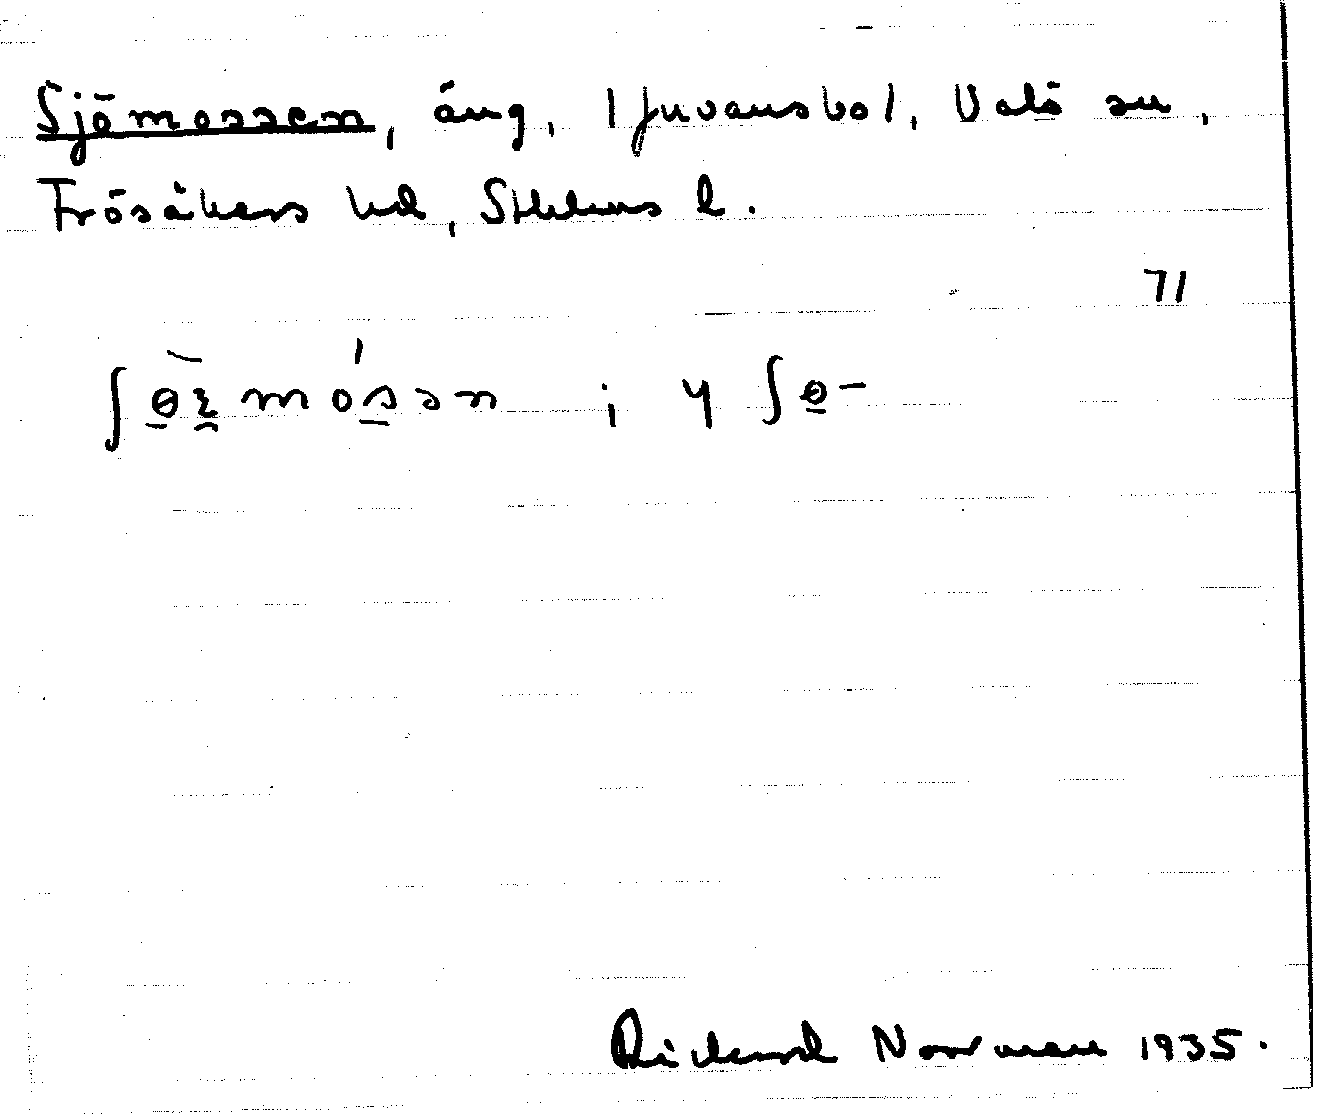 Sjömossen, äng, Ljuvansbol, Valö sn,
Frösåkers hd, Sthlms l.
71
ʃɵ̀ɛmósən ; y ʃɵ-
Rickard Norrman 1935.